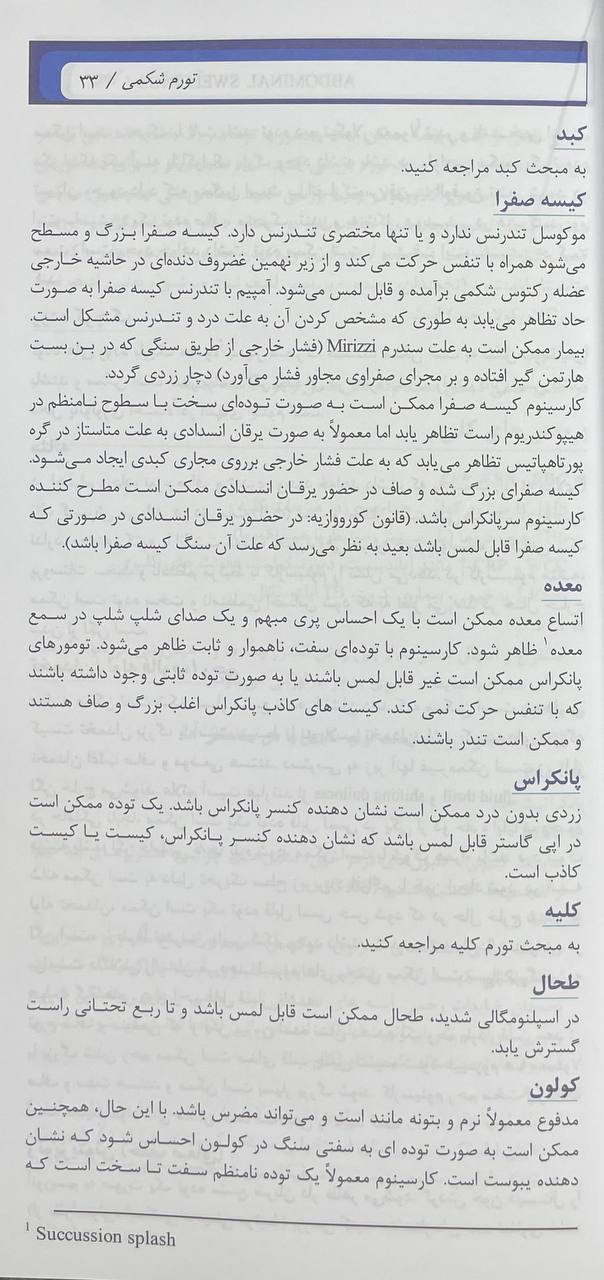 تورم شکمی / ۳۳
کبد
به مبحث کبد مراجعه کنید.
کیسه صفرا
موکوسل تندرنس ندارد و یا تنها مختصری تندرنس دارد. کیسه صفرا بزرگ و مسطح
می‌شود همراه با تنفس حرکت می‌کند و از زیر نهمین غضروف دنده‌ای در حاشیه خارجی
عضله رکتوس شکمی برآمده و قابل لمس می‌شود. آمپیم با تندرنس کیسه صفرا به صورت
حاد تظاهر می‌یابد به طوری که مشخص کردن آن به علت درد و تندرنس مشکل است.
بیمار ممکن است به علت سندرم Mirizzi (فشار خارجی از طریق سنگی که در بن بست
هارتمن گیر افتاده و بر مجرای صفراوی مجاور فشار می‌آورد) دچار زردی گردد.
کارسینوم کیسه صفرا ممکن است به صورت توده‌ای سخت با سطوح نامنظم در
هیپوکندریوم راست تظاهر یابد اما معمولاً به صورت یرقان انسدادی به علت متاستاز در گره
پورتاهپاتیس تظاهر می‌یابد که به علت فشار خارجی برروی مجاری کبدی ایجاد می‌شود.
کیسه صفرای بزرگ شده و صاف در حضور یرقان انسدادی ممکن است مطرح کننده
کارسینوم سرپانکراس باشد. (قانون کوروازیه: در حضور یرقان انسدادی در صورتی که
کیسه صفرا قابل لمس باشد بعید به نظر می‌رسد که علت آن سنگ کیسه صفرا باشد).
معده
اتساع معده ممکن است با یک احساس پری مبهم و یک صدای شلپ شلپ در سمع
معده۱ ظاهر شود. کارسینوم با توده‌ای سفت، ناهموار و ثابت ظاهر می‌شود. تومورهای
پانکراس ممکن است غیر قابل لمس باشند یا به صورت توده ثابتی وجود داشته باشند
که با تنفس حرکت نمی کند. کیست های کاذب پانکراس اغلب بزرگ و صاف هستند
و ممکن است تندر باشند.
پانکراس
زردی بدون درد ممکن است نشان دهنده کنسر پانکراس باشد. یک توده ممکن است
در اپی گاستر قابل لمس باشد که نشان دهنده کنسر پانکراس، کیست یا کیست
کاذب است.
کلیه
به مبحث تورم کلیه مراجعه کنید.
طحال
در اسپلنومگالی شدید، طحال ممکن است قابل لمس باشد و تا ربع تحتانی راست
گسترش یابد.
کولون
مدفوع معمولاً نرم و بتونه مانند است و می‌تواند مضرس باشد. با این حال، همچنین
ممکن است به صورت توده ای به سفتی سنگ در کولون احساس شود که نشان
دهنده یبوست است. کارسینوم معمولاً یک توده نامنظم سفت تا سخت است که
1 Succussion splash